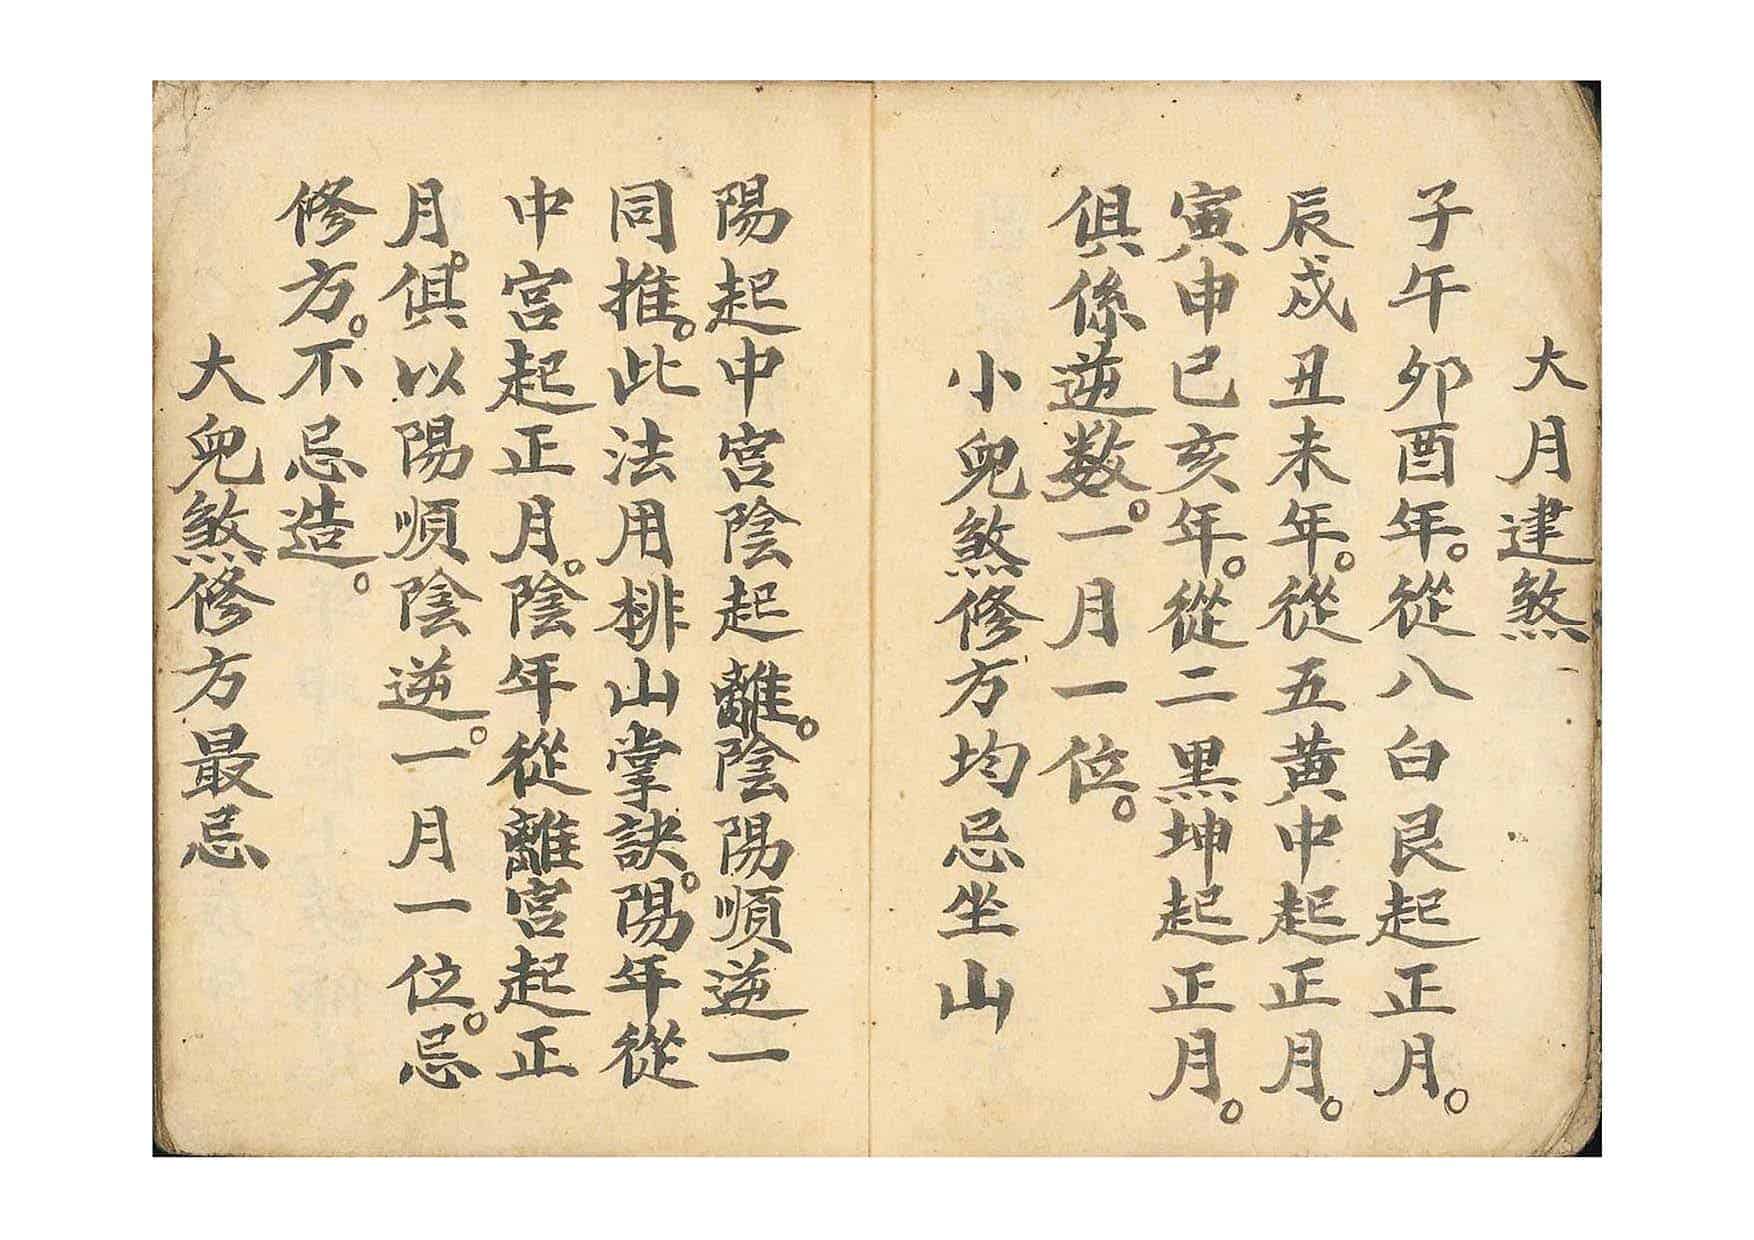 大月建煞
子午卯酉年。從八白艮起正月。
辰戌丑未年。從五黃中起正月。
寅申巳亥年。從二黑坤起正月。
俱係逆数。一月一位。
小兒煞修方均忌坐山
陽起中宮陰起離。陰陽順逆一
同推。此法用排山掌訣。陽年從
中宮起正月。陰年從離宮起正
月。俱以陽順陰逆。一月一位。忌
修方。不忌造。
大兒煞修方最忌